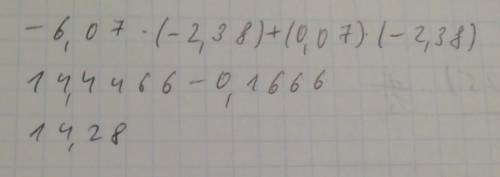 -6,07 · (-2,38) + (0,07) · (-2,38)
14,4466 - 0,1666
14,28